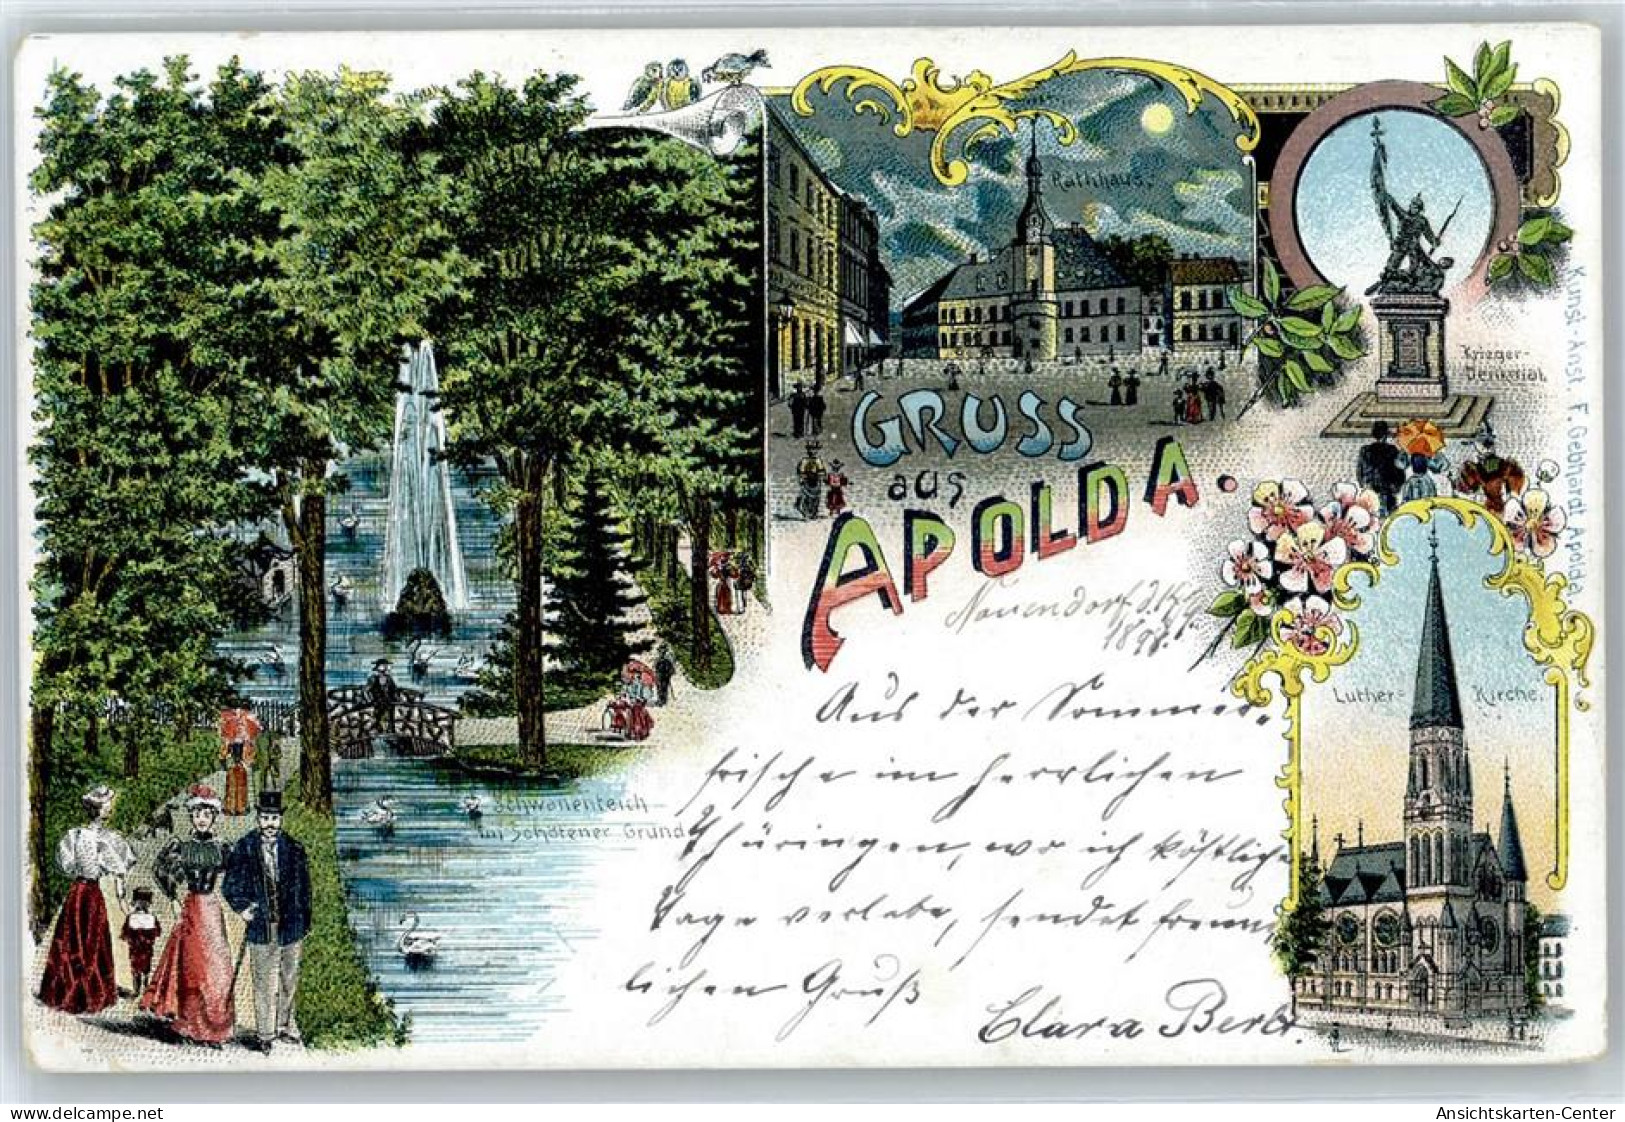 Rathhaus.
Krieger-
Denkmal.
GRUSS
aus
APOLDA.
Kunst-Anst. F. Gebhardt Apolda.
Luther-Kirche.
Schwanenteich
im Schötener Grund
1898.
Aus der Sommer-
frische im herrlichen
Thüringen, wo ich köstliche
Tage verlebe, sendet freund-
lichen Gruß
Clara
delcampe.net
Ansichtskarten-Center